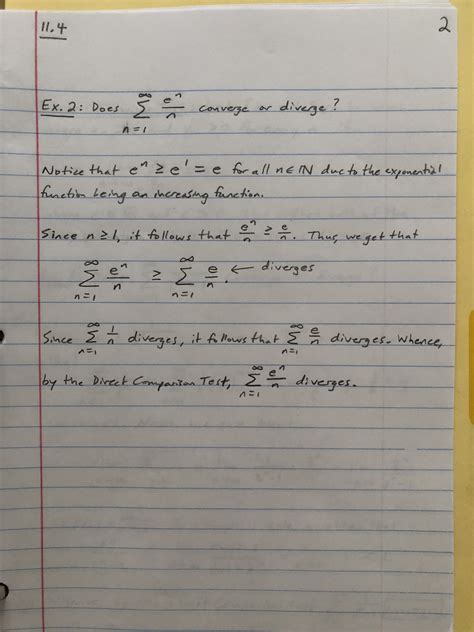 11.4 2
Ex. 2: Does ∞ Σ n=1 e^n/n converge or diverge?
Notice that e^n ≥ e^1 = e for all n ∈ ℕ due to the exponential
function being an increasing function.
Since n ≥ 1, it follows that e^n/n ≥ e/n. Thus, we get that
∞ Σ n=1 e^n/n ≥ ∞ Σ n=1 e/n. ← diverges
Since ∞ Σ n=1 1/n diverges, it follows that ∞ Σ n=1 e/n diverges. Whence,
by the Direct Comparison Test, ∞ Σ n=1 e^n/n diverges.